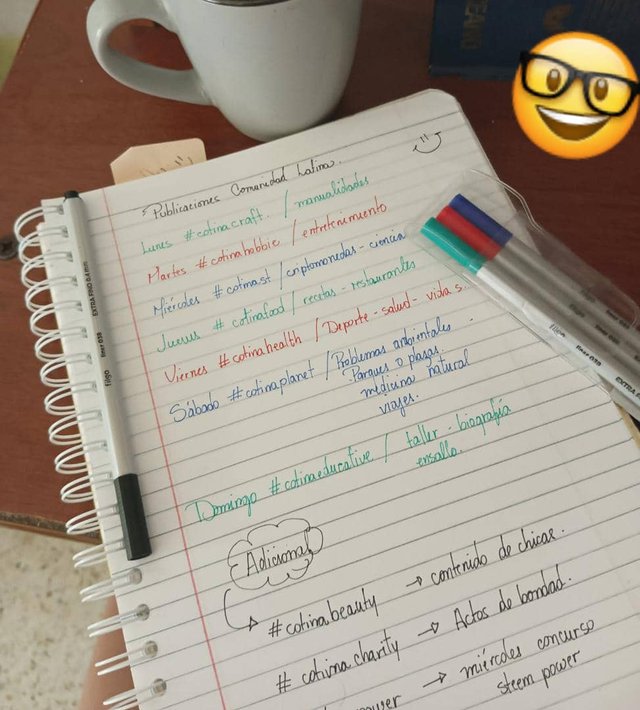 Publicaciones Comunidad Latina.
Lunes #cotinacraft. / manualidades
Martes #cotinahobbie / entretenimiento
Miércoles #cotinast / criptomonedas - ciencia
Jueves #cotinafood / recetas - restaurantes
Viernes #cotinahealth / Deporte - salud - vida s..
Sábado #cotinaplanet / Problemas ambientales
Parques o plazas.
medicina natural
viajes.
Domingo #cotinaeducative / taller - biografía
ensallo.
Adicional
#cotinabeauty → contenido de chicas.
# cotinacharity → Actos de bondad.
→ miércoles concurso
steem power
EXTRA FINO 0.4 mm
liner 038
filgo
filgo
liner 038